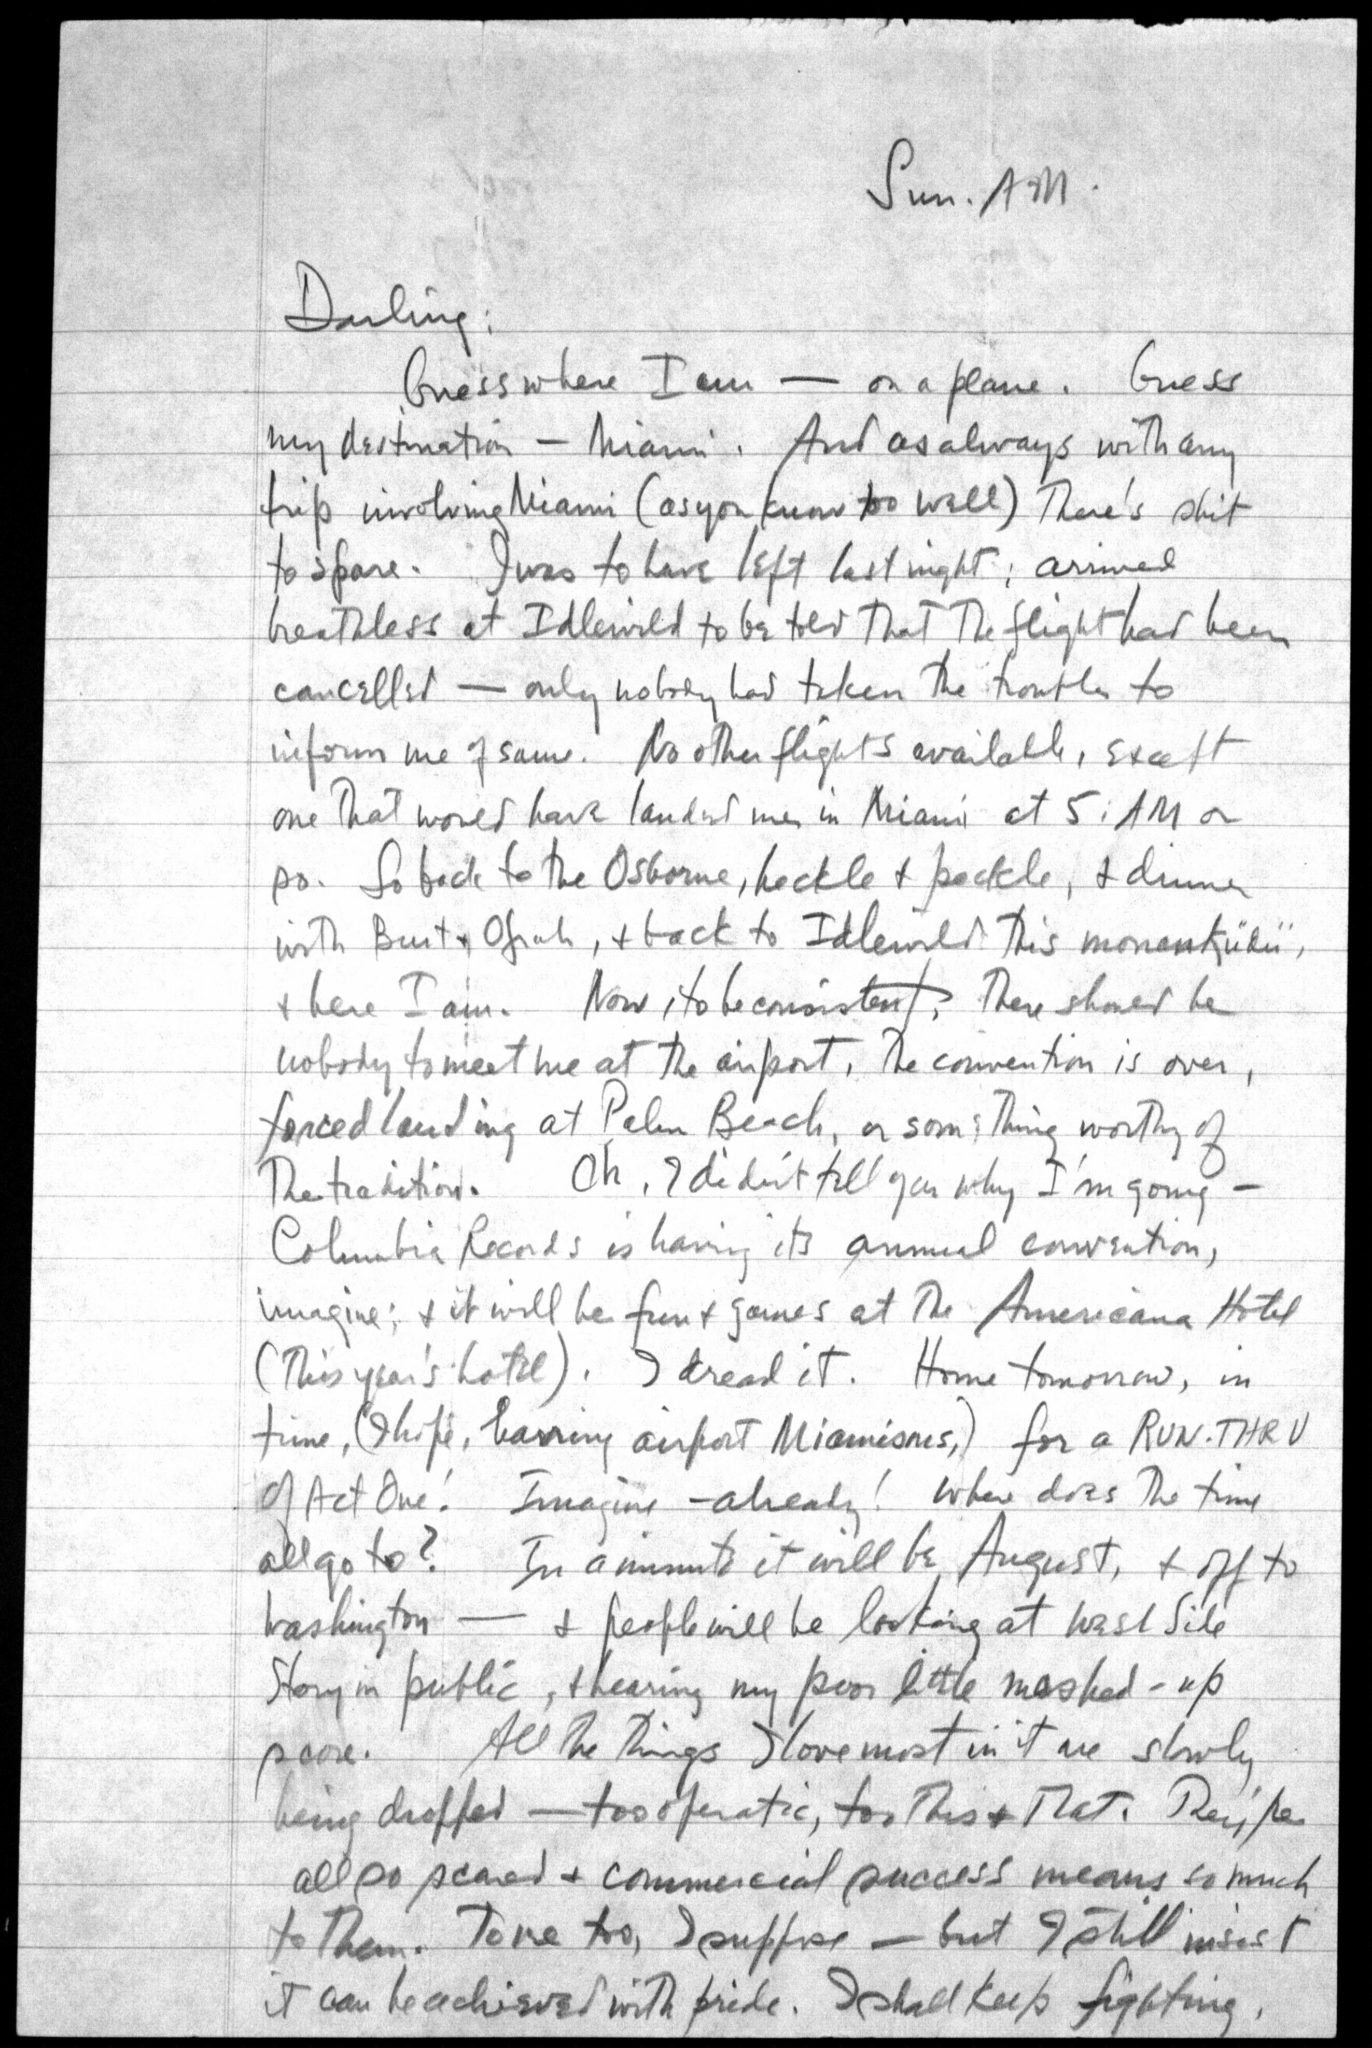 Sun. AM.
Darling:
Guess where I am — on a plane. Guess
my destination — Miami. And as always with any
trip involving Miami (as you know too well) there's shit
to spare. I was to have left last night; arrived
breathless at Idlewild to be told that the flight had been
cancelled — only nobody had taken the trouble to
inform me of same. No other flights available, except
one that would have landed me in Miami at 5: AM or
so. So back to the Osborne, heckle & peckle, & dinner
with Burt & Ofrah, & back to Idlewild this
& here I am. Now, to be consistent, there should be
nobody to meet me at the airport, the convention is over,
forced landing at Palm Beach, or something worthy of
the tradition. Oh, I didn't tell you why I'm going —
Columbia Records is having its annual convention,
imagine; & it will be fun & games at the Americana Hotel
(this year's hotel). I dread it. Home tomorrow, in
time, (I hope, barring airport Miamisms,) for a RUN-THRU
of Act One! Imagine — already! Where does the time
all go to? In a minute it will be August, & off to
Washington — & people will be looking at West Side
Story in public, & hearing my poor little mashed-up
score. All the things I love most in it are slowly
being dropped — too operatic, too this & that. They're
all so scared & commercial success means so much
to them. To me too, I suppose — but I still insist
it can be achieved with pride. I shall keep fighting.